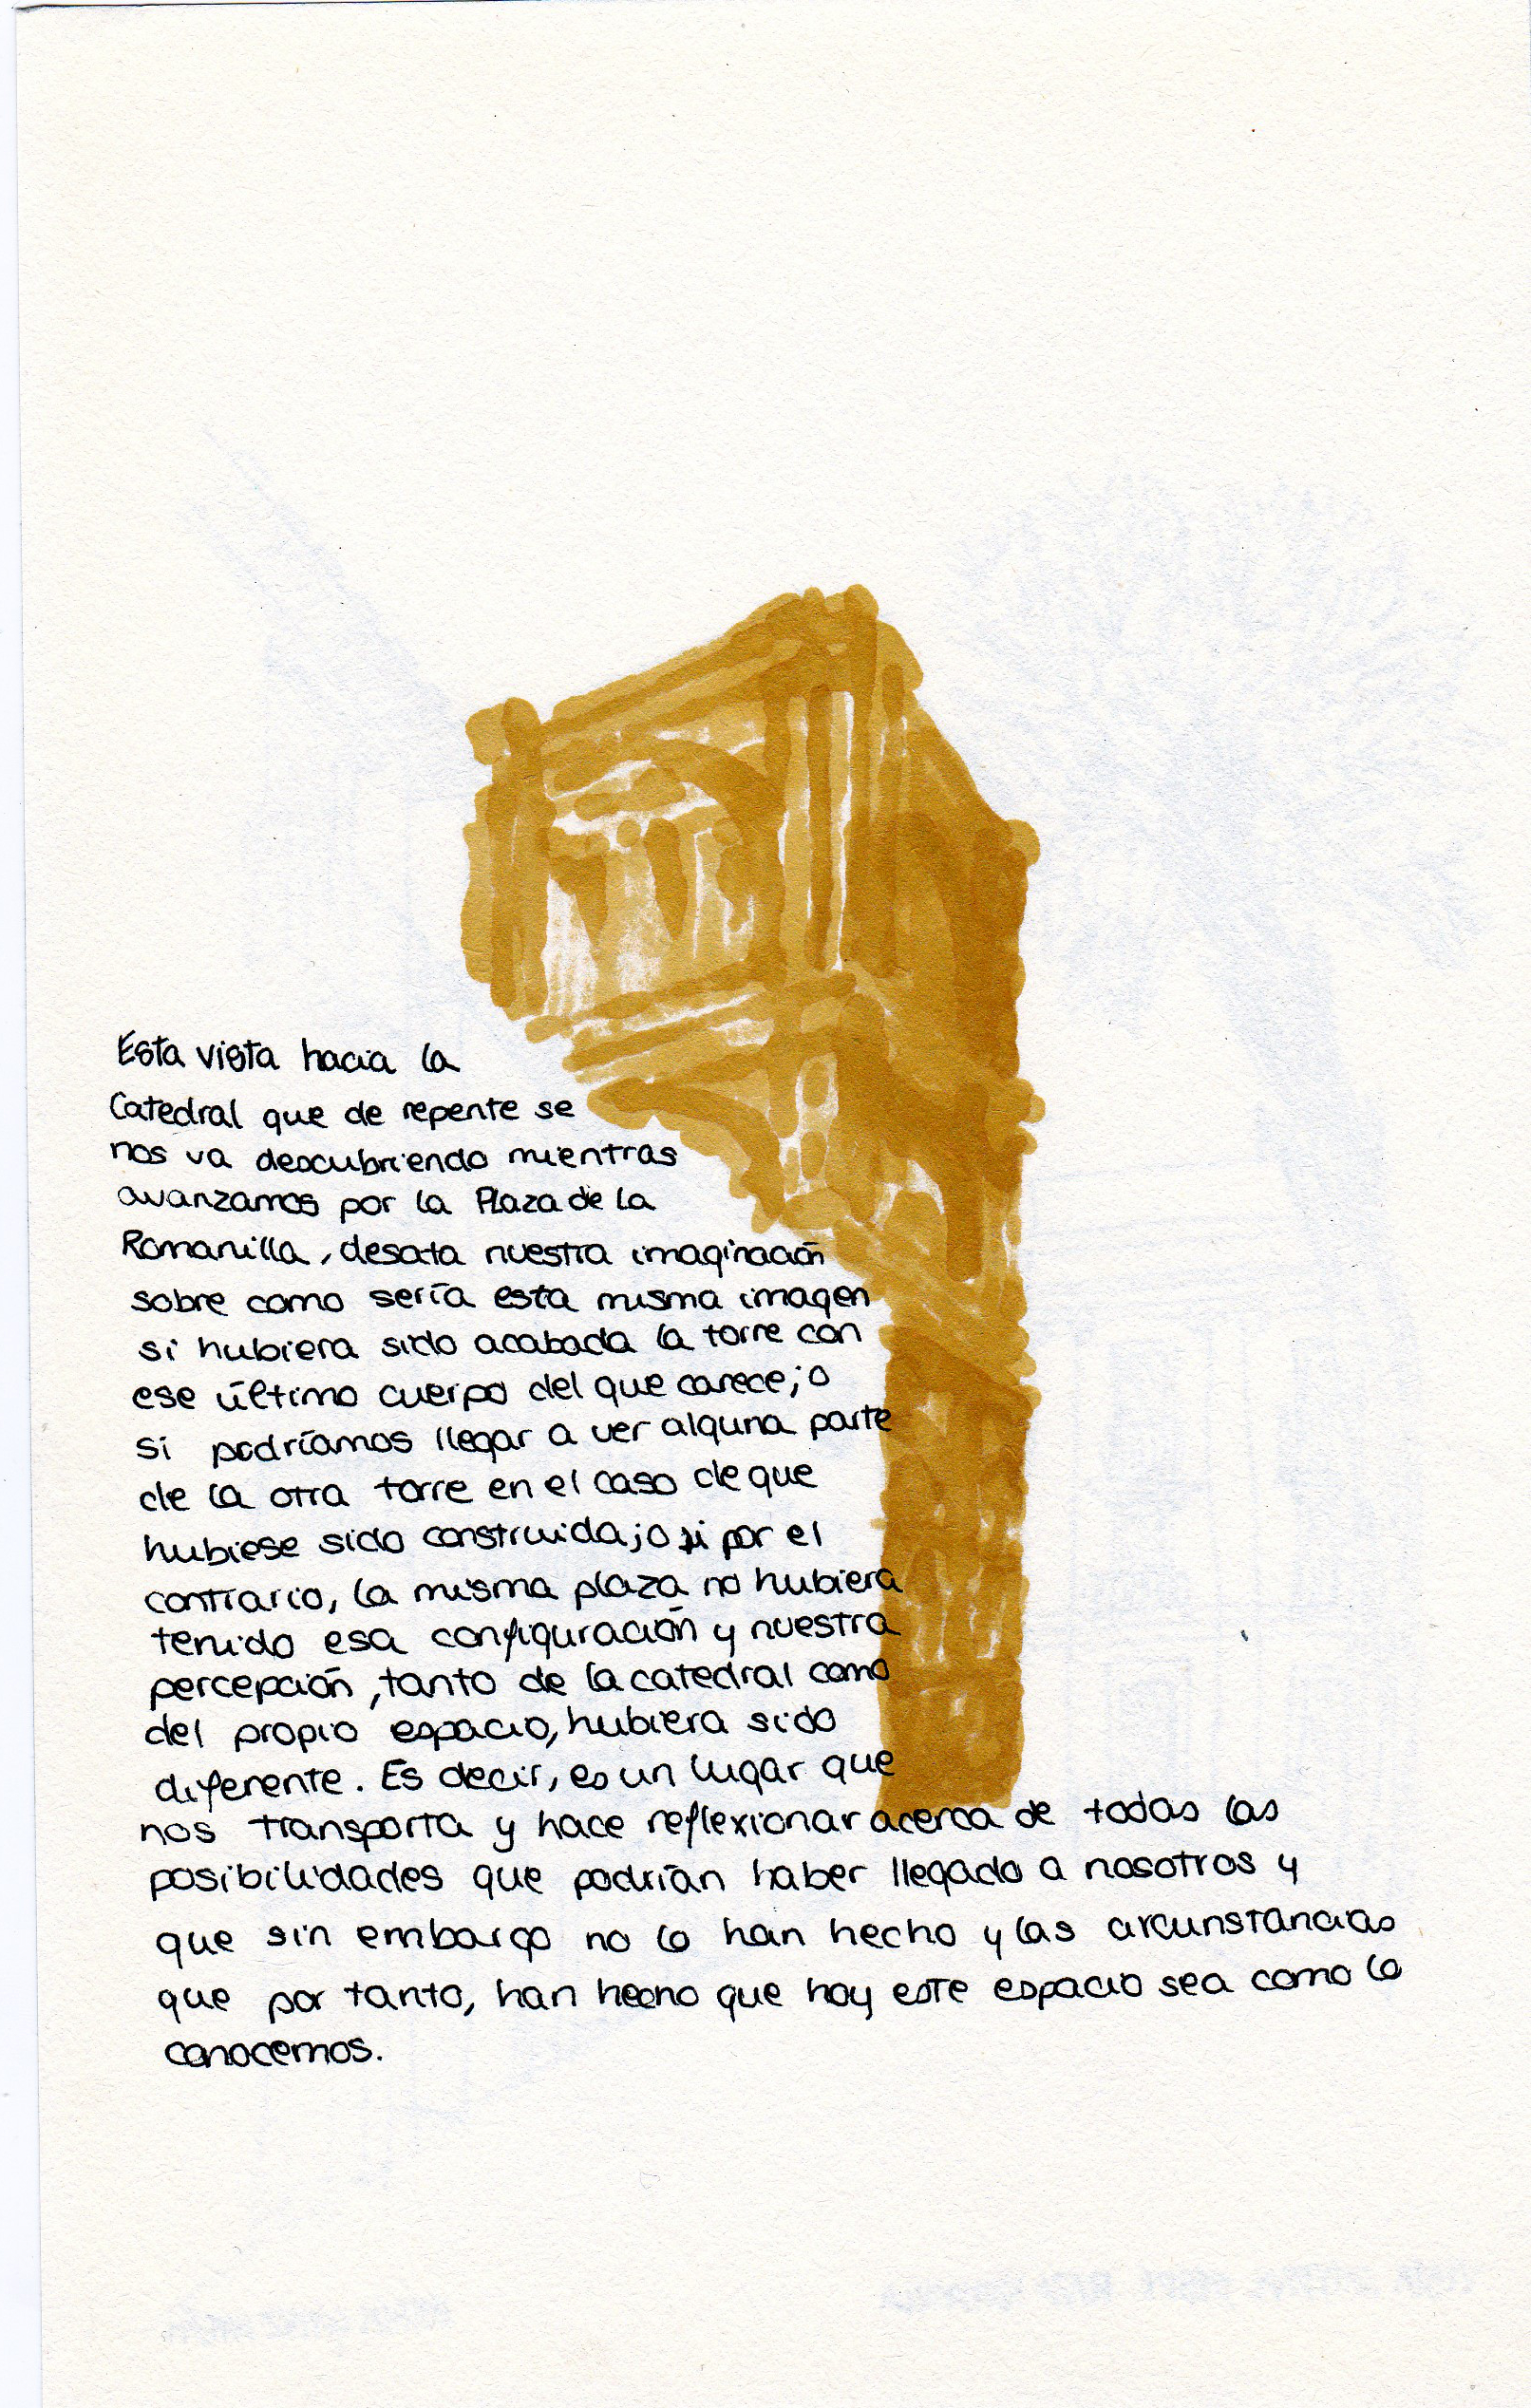 Esta vista hacia la
Catedral que de repente se
nos va descubriendo mientras
avanzamos por la Plaza de la
Romanilla, desata nuestra imaginación
sobre como sería esta misma imagen
si hubiera sido acabada la torre con
ese último cuerpo del que carece; o
si podríamos llegar a ver alguna parte
de la otra torre en el caso de que
hubiese sido construida; o si por el
contrario, la misma plaza no hubiera
tenido esa configuración y nuestra
percepción, tanto de la catedral como
del propio espacio, hubiera sido
diferente. Es decir, es un lugar que
nos transporta y hace reflexionar acerca de todas las
posibilidades que podrían haber llegado a nosotros y
que sin embargo no lo han hecho y las circunstancias
que por tanto, han hecho que hoy este espacio sea como lo
conocemos.